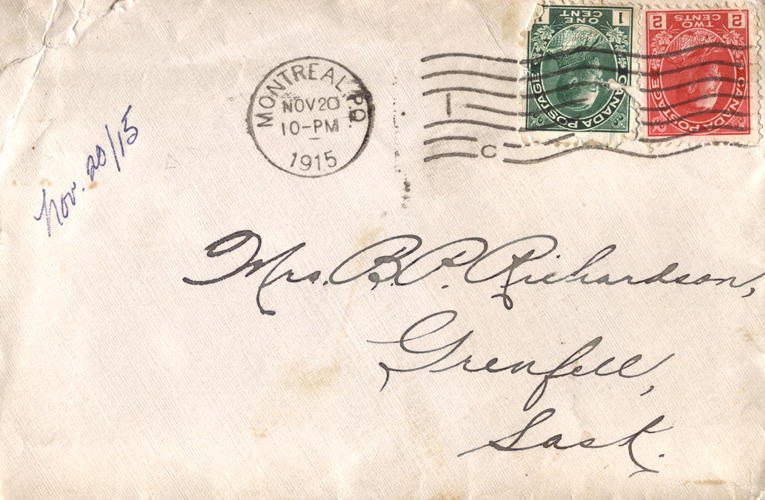 MONTREAL, P.Q.
NOV 20
10-PM
1915
1
C
1 ONE CENT 1
CANADA POSTAGE
2 TWO CENTS 2
CANADA POSTAGE
Nov. 20/15
Mrs. B. P. Richardson,
Grenfell,
Sask.